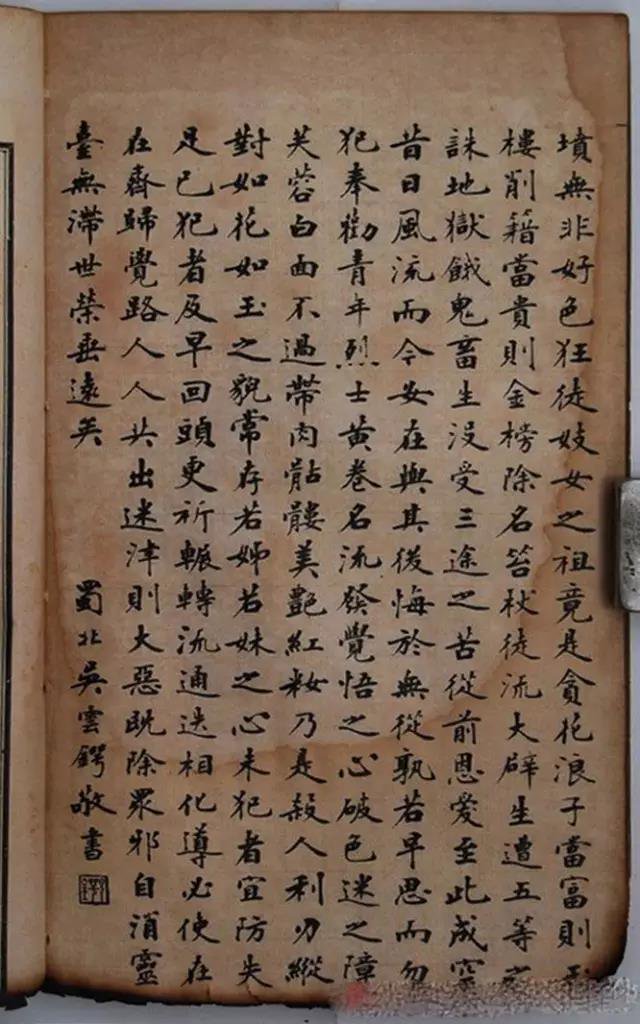 墳無非好色狂徒妓女之祖竟是貪花浪子當富則玉
樓削籍當貴則金榜除名笞杖徒流大辟生遭五等
誅地獄餓鬼畜生没受三途之苦從前恩愛至此成空
昔日風流而今安在與其後悔於無從孰若早思而勿
犯奉勸青年烈士黃卷名流發覺悟之心破色迷之障
芙蓉白面不過帶肉骷髏美艷紅粧乃是殺人利刃縱
對如花如玉之貌常存若姊若妹之心未犯者宜防失
足已犯者及早回頭更祈輾轉流通迭相化導必使在
在齊歸覺路人人共出迷津則大惡既除眾邪自消靈
臺無滯世榮垂遠矣
蜀北吳雲鍔敬書